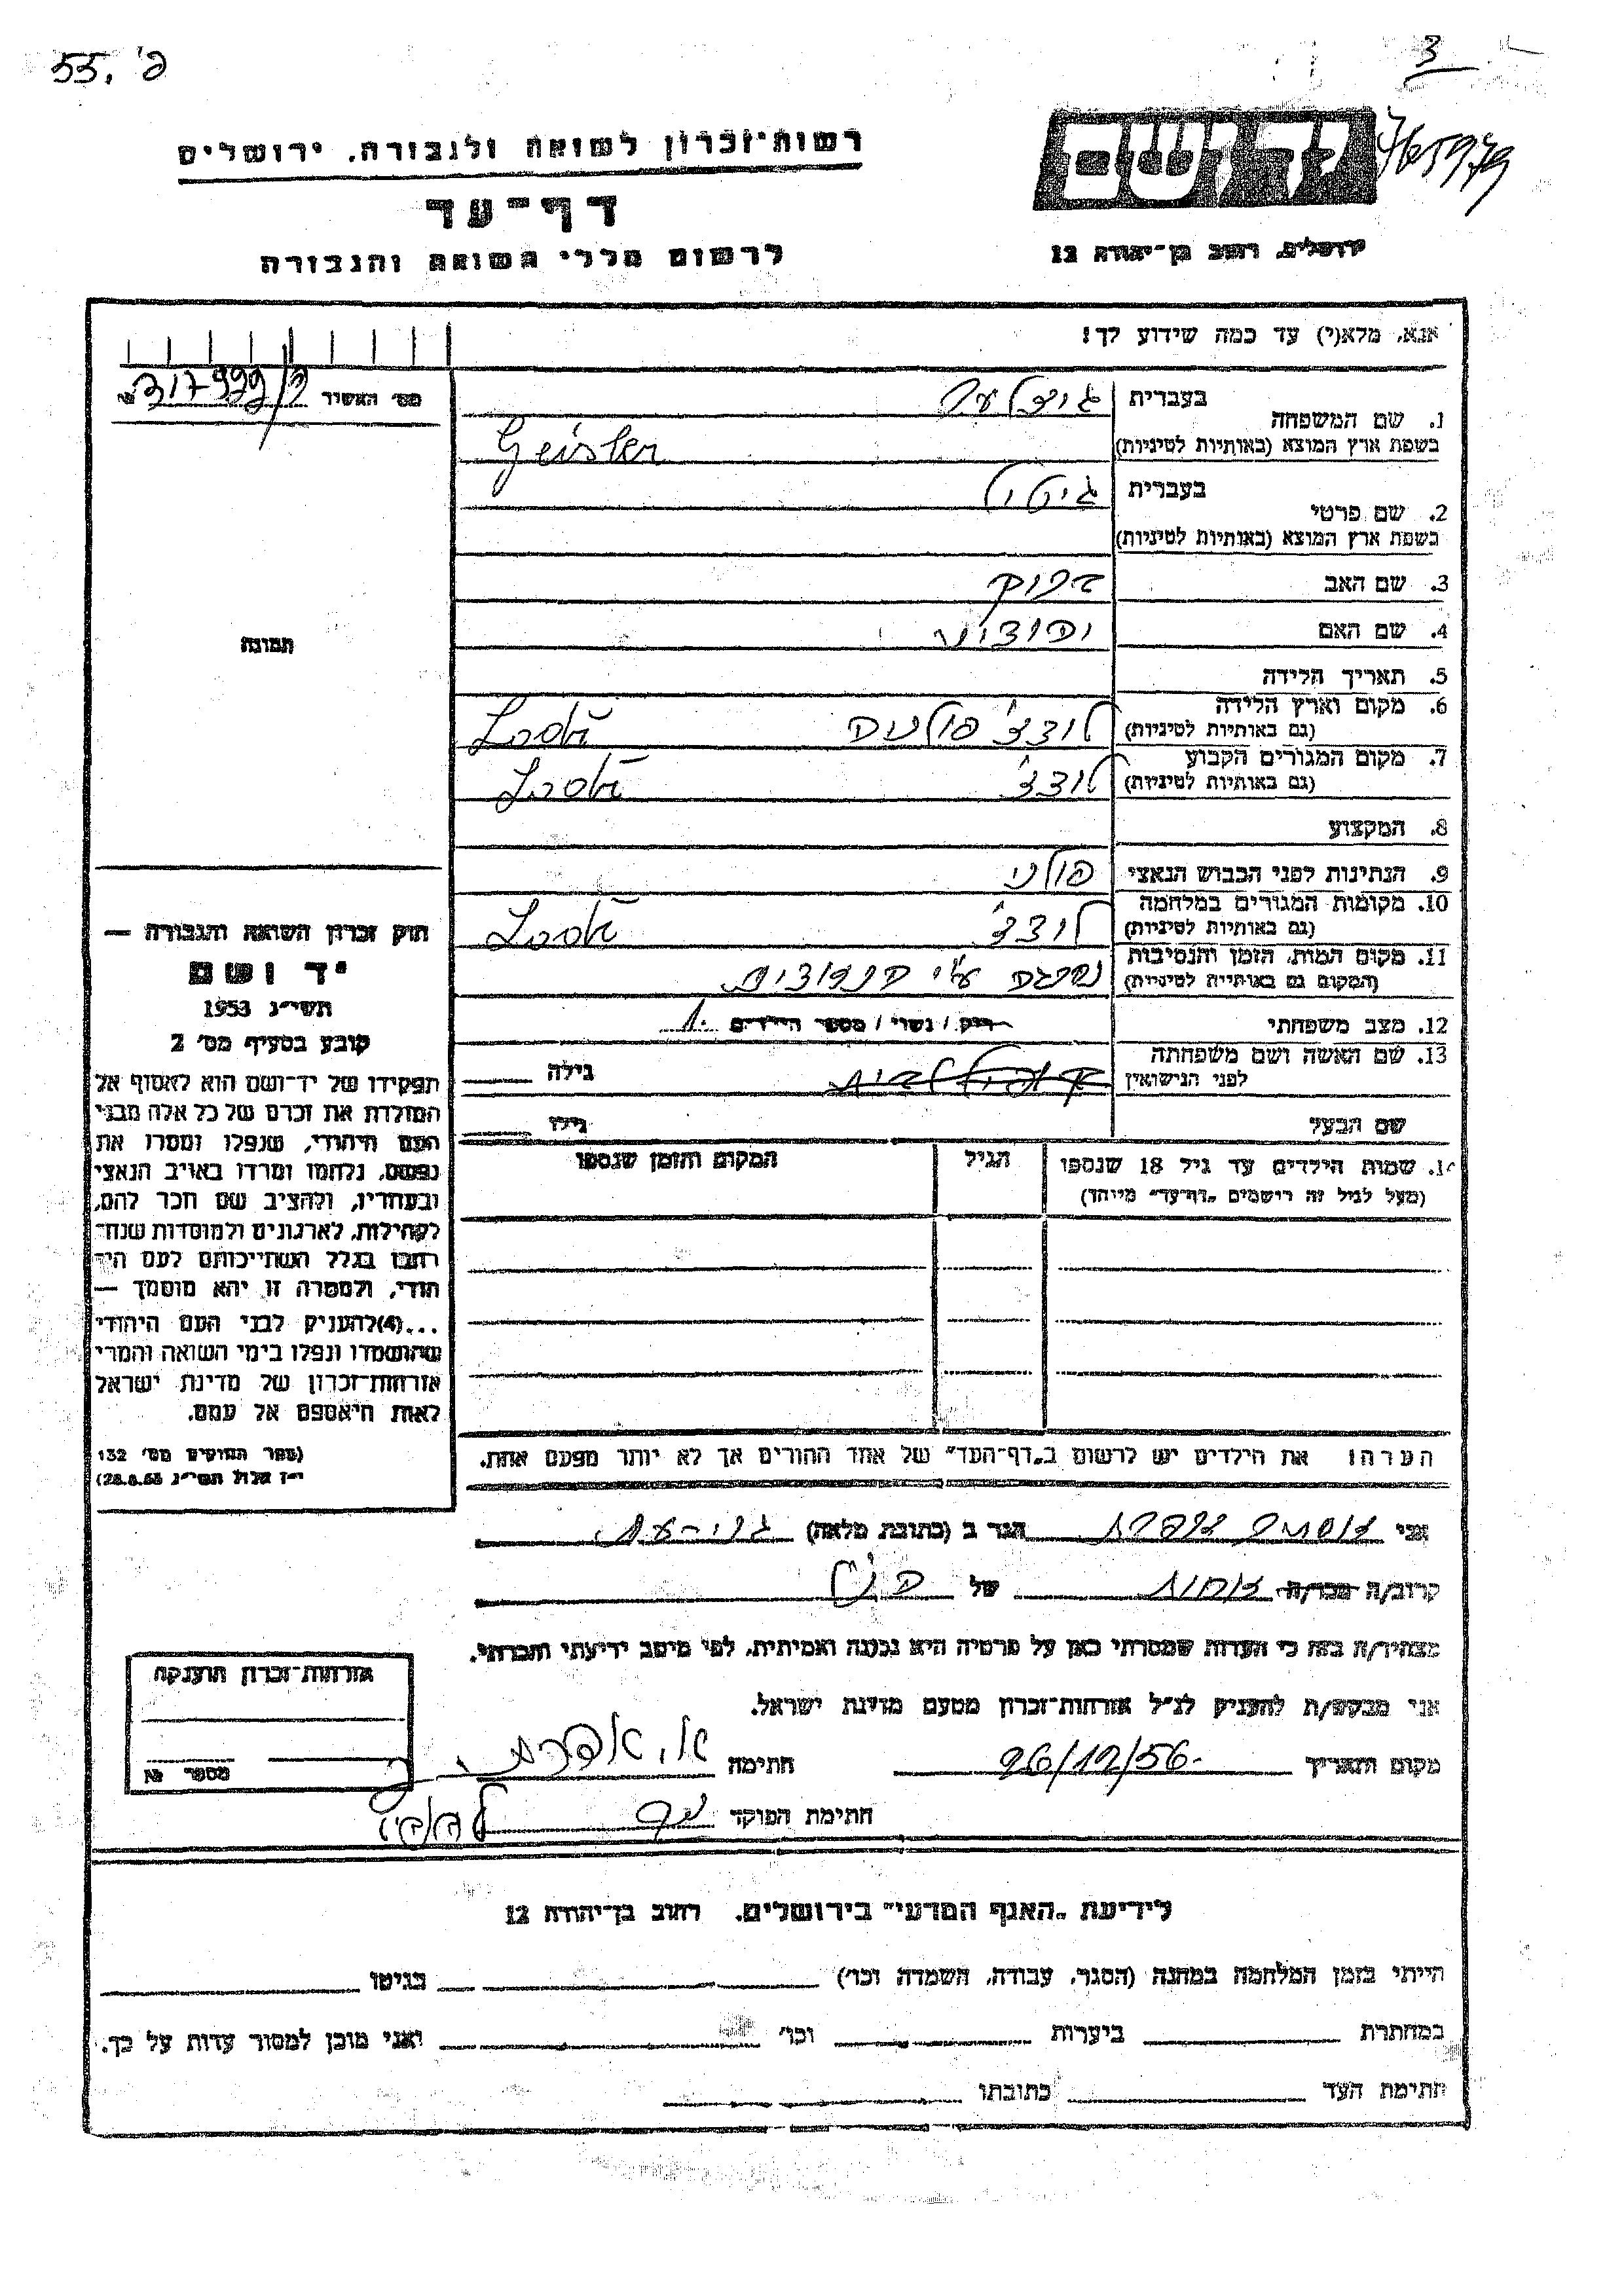 פ' 55.
3
765979
רשות־זכרון לשואה ולגבורה, ירושלים
דף־עד
לרשום חללי השואה והגבורה
יד ושם
ירושלים, רחוב בן־יהודה 12
אנא, מלא(י) עד כמה שידוע לך!
מס׳ האשיר № 317999/
1. שם המשפחה
בעברית גייסלער
בשפת ארץ המוצא (באותיות לטיניות) Geisler
2. שם פרטי
בעברית
בשפת ארץ המוצא (באותיות לטיניות)
3. שם האב ברוך
4. שם האם יהודית
5. תאריך הלידה
6. מקום וארץ הלידה לודז' פולניה
(גם באותיות לטיניות)
7. מקום המגורים הקבוע לודז'
(גם באותיות לטיניות)
8. המקצוע
9. הנתינות לפני הכבוש הנאצי פולני
10. מקומות המגורים במלחמה לודז'
(גם באותיות לטיניות)
11. מקום המות, הזמן והנסיבות נהרגה ע"י
(המקום גם באותיות לטיניות)
12. מצב משפחתי רווק / נשוי / מספר הילדים
13. שם האשה ושם משפחתה
לפני הנישואין גילה
שם הבעל גילו
14. שמות הילדים עד גיל 18 שנספו
(מעל לגיל זה רושמים „דף־עד” מיוחד)
הגיל
המקום והזמן שנספו
הערה: את הילדים יש לרשום ב„דף־העד” של אחד ההורים אך לא יותר מפעם אחת.
תמונה
חוק זכרון השואה והגבורה —
יד ושם
תשי״ג 1953
קובע בסעיף מס׳ 2
תפקידו של יד־ושם הוא לאסוף אל
המולדת את זכרם של כל אלה מבני
העם היהודי, שנפלו ומסרו את
נפשם, נלחמו ומרדו באויב הנאצי
ובעוזריו, ולהציב שם וזכר להם,
לקהילות, לארגונים ולמוסדות שנח־
רבו בגלל השתייכותם לעם הי־
הודי, ולמטרה זו יהא מוסמך —
...(4) להעניק לבני העם היהודי
שהושמדו ונפלו בימי השואה והמרי
אזרחות־זכרון של מדינת ישראל
לאות היאספם אל עמם.
(ספר החוקים מס׳ 132
י״ז אלול תשי״ג 28.8.53)
אני הגר ב (כתובת מלאה)
קרוב/ה מכר/ה של
מצהיר/ה בזה כי העדות שמסרתי כאן על פרטיה היא נכונה ואמיתית, לפי מיטב ידיעתי והכרתי.
אני מבקש/ת להעניק לנ״ל אזרחות־זכרון מטעם מדינת ישראל.
מקום ותאריך 26/12/56 חתימה
חתימת הפוקד
אזרחות־זכרון הוענקה
מספר №
לידיעת „האגף המדעי” בירושלים, רחוב בן־יהודה 12
הייתי בזמן המלחמה במחנה (הסגר, עבודה, השמדה וכו׳) בגיטו
במחתרת ביערות וכו׳ ואני מוכן למסור עדות על כך.
חתימת העד כתובתו